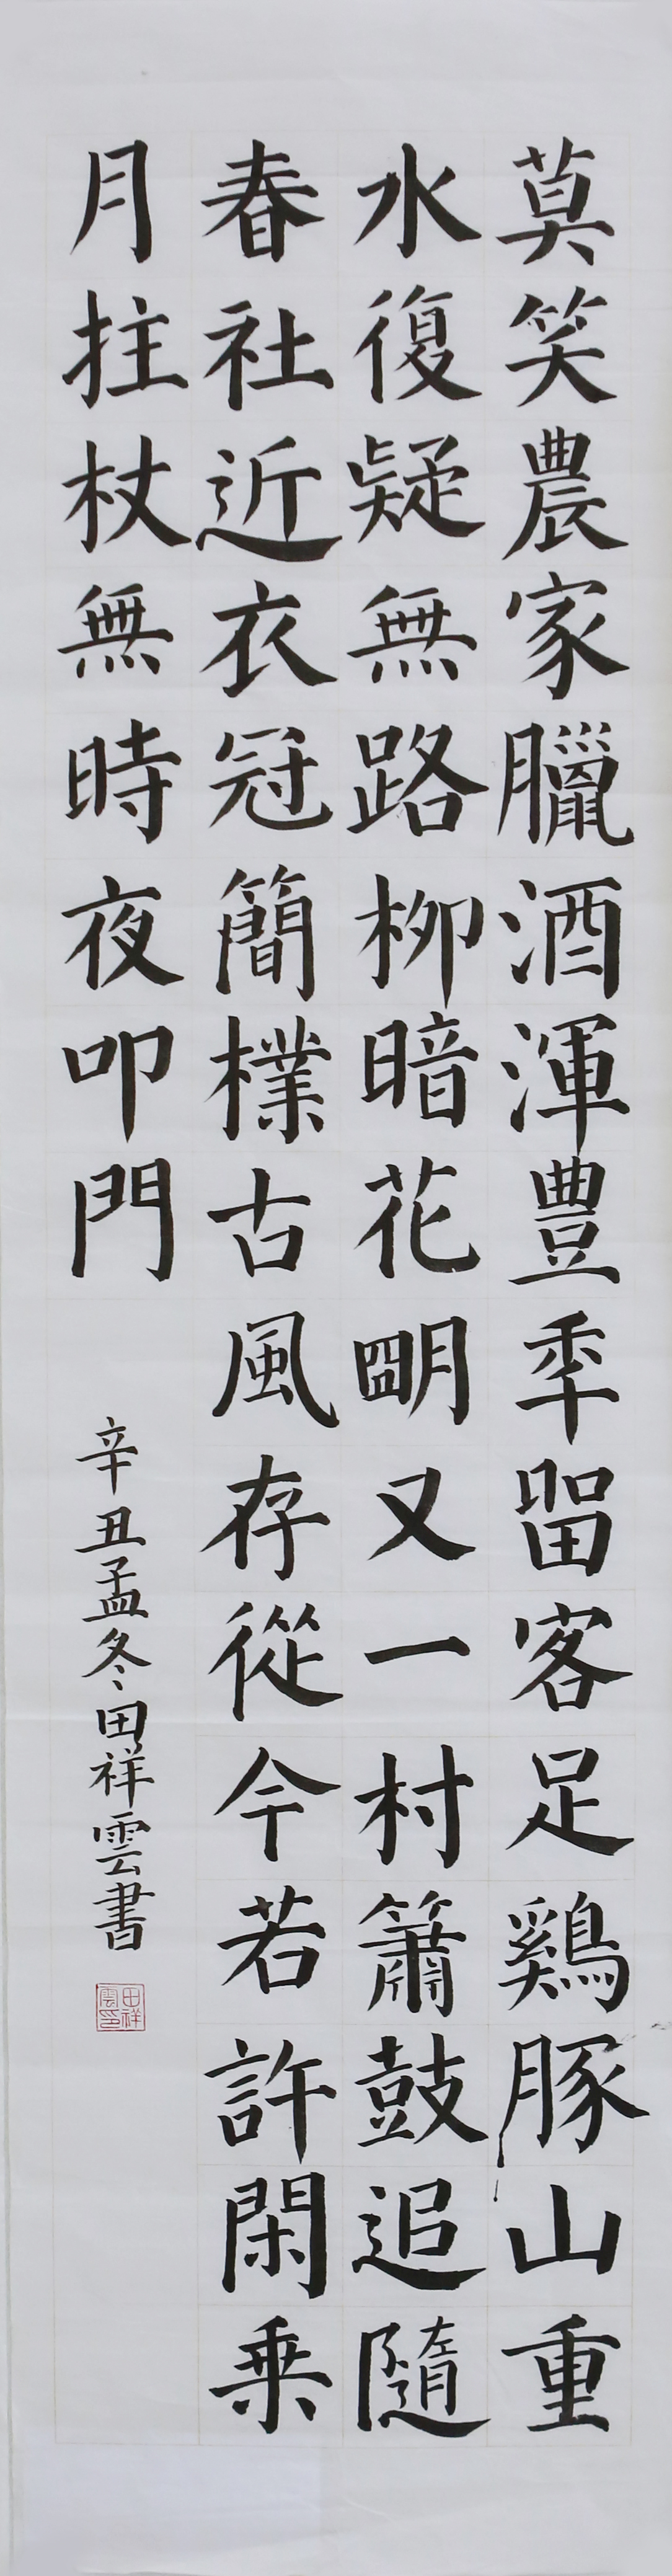 莫笑農家臘酒渾豊秊畱客足鷄豚山重
水復疑無路柳暗花朙又一村簫鼓追隨
春社近衣冠簡樸古風存從今若許閑乗
月拄杖無時夜叩門
辛丑孟冬田祥雲書
田祥雲印